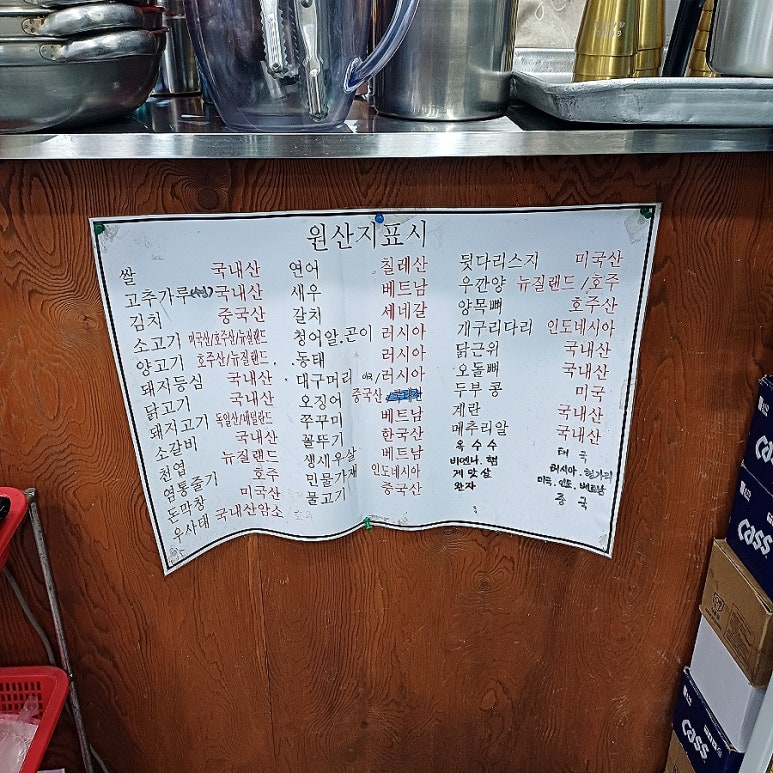 원산지표시
쌀 국내산
고추가루 국내산
김치 중국산
소고기 미국산/호주산/뉴질랜드
양고기 호주산/뉴질랜드
돼지등심 국내산
닭고기 국내산
돼지고기 독일산/네덜란드
소갈비 국내산
천엽 뉴질랜드
염통줄기 호주
돈막창 미국산
우사태 국내산암소
연어 칠레산
새우 베트남
갈치 세네갈
청어알.곤이 러시아
.동태 러시아
대구머리 /러시아
오징어 중국산
쭈꾸미 베트남
꼴뚜기 한국산
생새우살 베트남
민물가재 인도네시아
물고기 중국산
뒷다리스지 미국산
우깐양 뉴질랜드/호주
양목뼈 호주산
개구리다리 인도네시아
닭근위 국내산
오돌뼈 국내산
두부 콩 미국
계란 국내산
메추리알 국내산
옥수수 태국
비엔나.햄 러시아.헝가리
게맛살 미국.인도.베트남
완자 중국
Cass
Cass